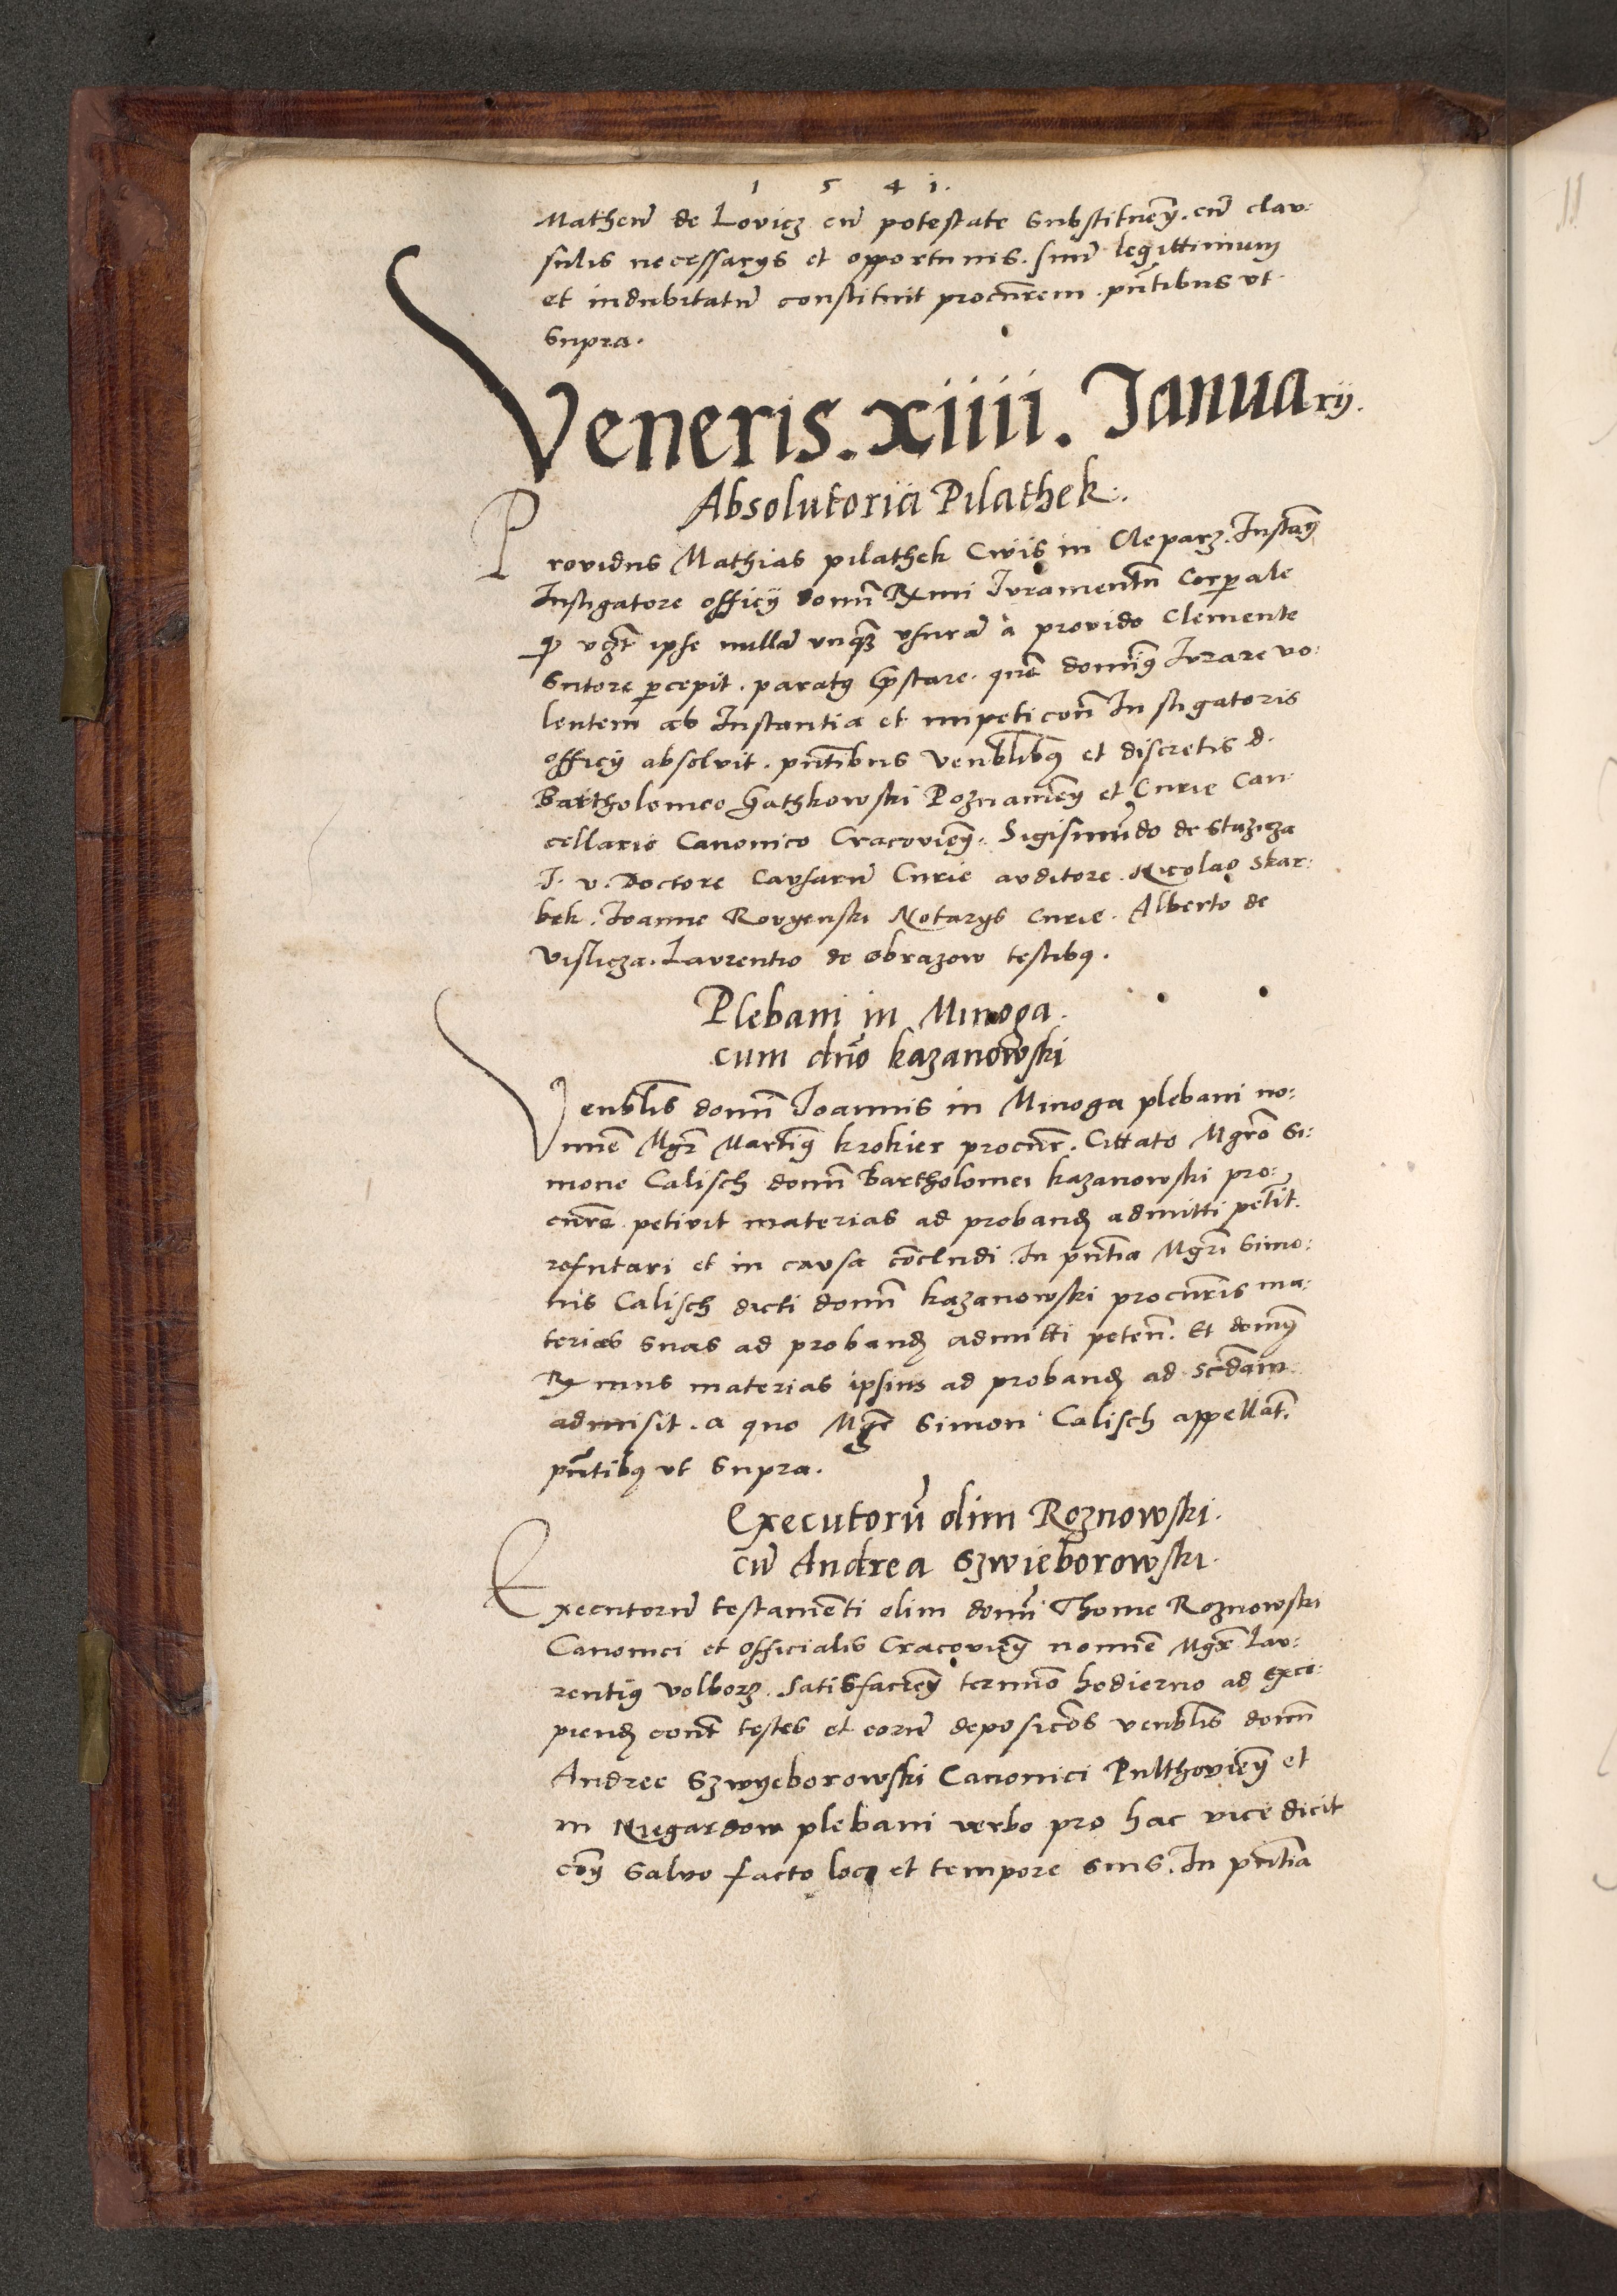 1 5 4 1.
Matheū de Lovicz cū potestate substituen̄. cū clau:
sulis necessarys et opportunis. suū legittimum
et indubitatū constituit procur̄rem. pn̄tibus vt
supra.
Veneris. xiiii. Januarÿ.
Absolutoria Pilathek.
Providus Mathias pilathek Civis in Cleparz. Instan̄
Instigatore officÿ domī Rx̄mi Iuramentū Corꝑale
ꝙ vꝫt ipse nullā vnqȝ vsurā à provido Clemente
sutore ꝑcepit. paratꝰ p̄stare. quē dominꝰ Iurare vo:
lentem ab Instantia et impeticōn Instigatoris
officÿ absolvit. pn̄tibus Venbl̄ibꝰ et discretis d.
Bartholomeo Gathkowski Poznanien̄ et Curie Can
cellario Canonico Cracovien̄. Sigismūdo de Stazicza
J. v. Doctore Causarū Curie auditore. Nicolao Skar:
bek. Joanne Rovyenski Notarys Curie. Alberto de
Vislicza. Laurentio de Obrazow testibꝰ.
Plebani in Minoga.
cum dn̄o kazanowski
Venbl̄is domī Joannis in Minoga plebani no:
mīe Mgr̄ Martinꝰ krokier procur̄. Cittato Mgr̄o Si:
mone Calisch domī Bartholomei kazanowski pro:
cur̄e petivit materias ad proband̄ admitti petit.
refutari et in causa cōcludi. In pn̄tia Mgr̄i Simo:
nis Calisch dicti domī kazanowski procur̄is ma:
terias suas ad proband̄ admitti peten̄. Et domꝰ
Rx̄mus materias ipsius ad proband̄ ad scd̄am
admisit. a quo Mgr̄ Simon Calisch appellat̄.
pn̄tibꝰ vt supra.
Executorū olim Roznowski.
cū Andrea Szwieborowski.
Executorū testamēti olim domī Thome Roznowski
Canonici et Officialis Cracovien̄ nomīe Mgr̄ Lau:
rentiꝰ Volborz. Satisfacien̄ termīo hodierno ad exci:
piend̄ cont̄ testes et eorū deposicōes venbl̄is domī
Andree Szwyeborowski Canonici Pulthovien̄ et
in Niegardow plebani verbo pro hac vice dicit
cōn̄ salvo facto loco et tempore suis. In pn̄tia